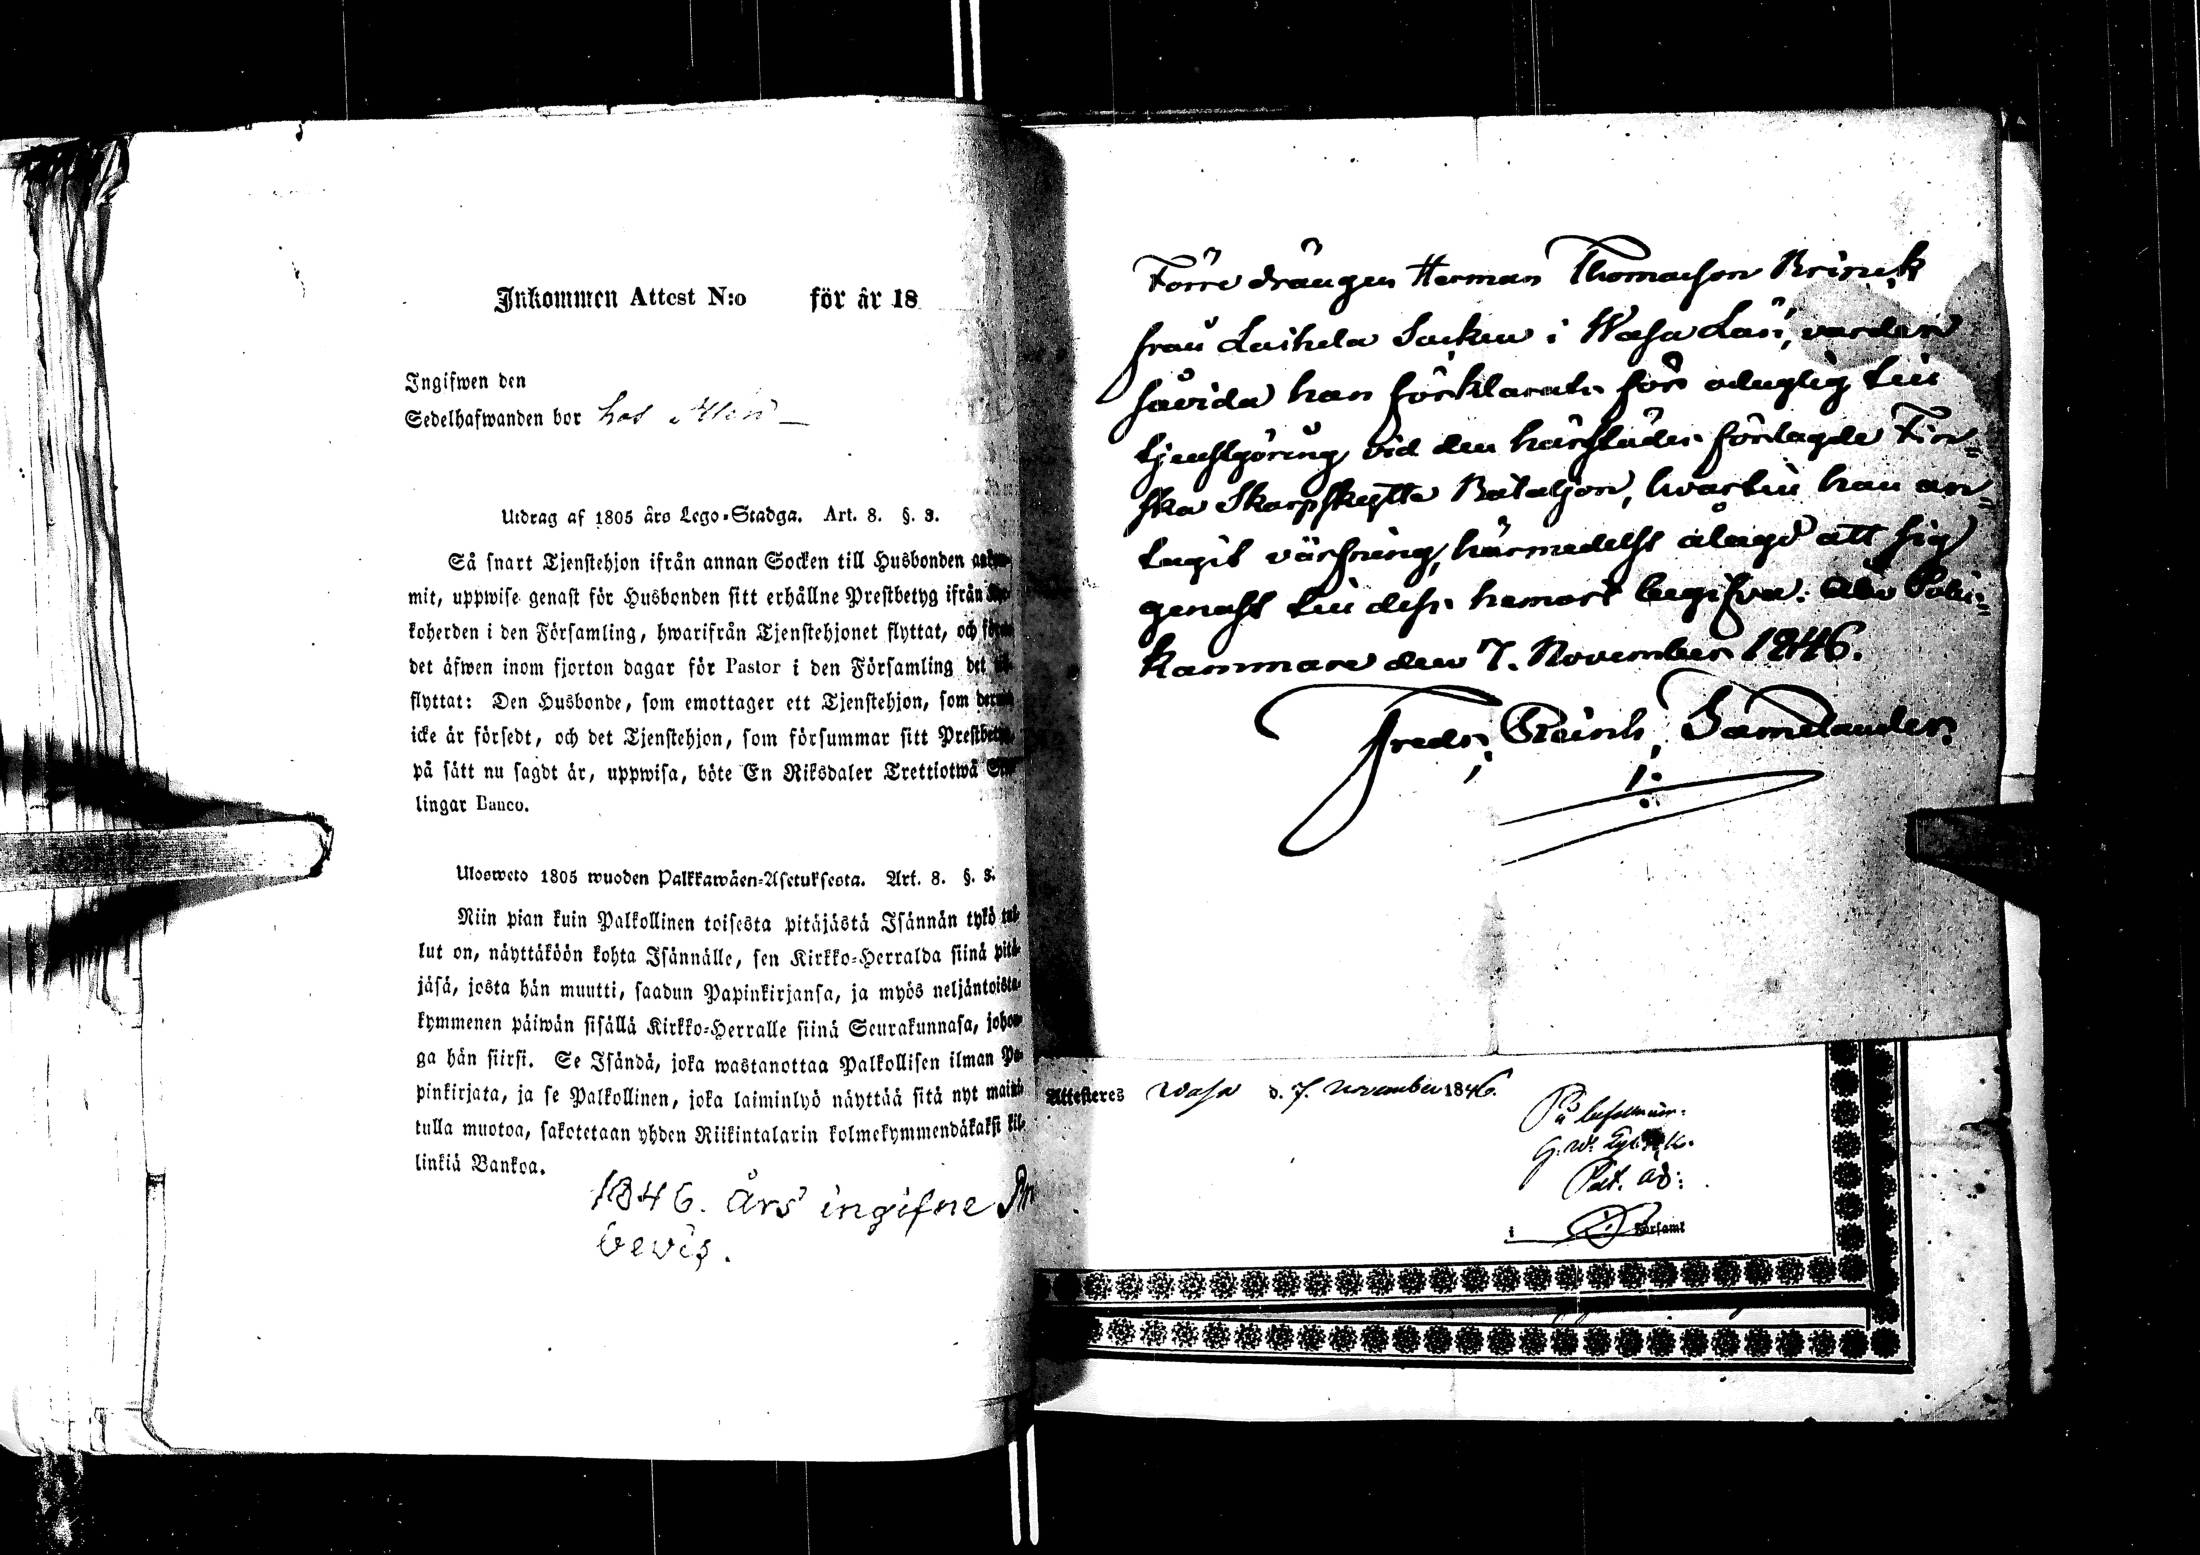 Inkommen Attest N:o för år 18
Ingifwen den
Sedelhafwanden bor hos
Utdrag af 1805 års Lego-Stadga. Art. 8. §. 3.
Så snart Tjenstehjon ifrån annan Socken till Husbonden
mit, uppwise genast för Husbonden sitt erhållne Prestbetyg ifrån
koherden i den Församling, hwarifrån Tjenstehjonet flyttat, och
det äfwen inom fjorton dagar för Pastor i den Församling det
flyttat: Den Husbonde, som emottager ett Tjenstehjon, som
icke är försedt, och det Tjenstehjon, som försummar sitt
på sätt nu sagdt är, uppwisa, böte En Riksdaler Trettiotwå
lingar Banco.
Ulosweto 1805 wuoden Palkkawäen-Asetuksesta. Art. 8. §. 3.
Niin pian kuin Palkollinen toisesta pitäjästä Isännän tykö
lut on, näyttäköön kohta Isännälle, sen Kirkko-Herralda siinä pitä-
jäsä, josta hän muutti, saadun Papinkirjansa, ja myös neljäntoista-
kymmenen päiwän sisällä Kirkko-Herralle siinä Seurakunnasa, johon-
ga hän siirsi. Se Isändä, joka wastanottaa Palkollisen ilman Pa-
pinkirjata, ja se Palkollinen, joka laiminlyö näyttää sitä nyt
tulla muotoa, sakotetaan yhden Riikintalarin kolmekymmendäkaksi kil-
linkiä Bankoa.
1846. års ingifne
bevis.
Förre drängen Herman Thomasson Brinck
från Laihela Socken i Wasa Län, varder
såvida han förklarats för oduglig till
tjenstgöring vid den härstädes förlagde Fin-
ska Skarpskytte Bataljon, hvartill han an-
tagit värfning, härmedelst ålagd att sig
genast till dess hemort begifva. Åbo Poli-
kammare den 7. November 1846.
Fredr. Reinh. Samelander.
Attesteres Wasa d. 7. November 1846.
Församl